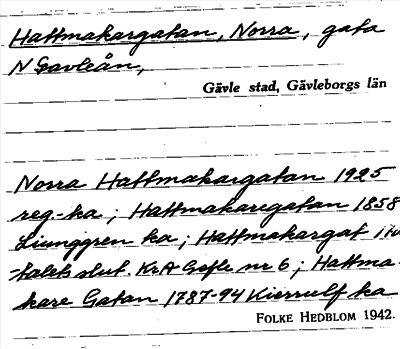 Hattmakargatan, Norra, gata
N Gavleån,
Gävle stad, Gävleborgs län
Norra Hattmakargatan 1925
reg-ka; Hattmakaregatan 1858
Ljunggren ka; Hattmakargat
-talets slut. KrA Gefle nr 6; Hattma-
kare Gatan 1787-94 Kierrulf ka
FOLKE HEDBLOM 1942.